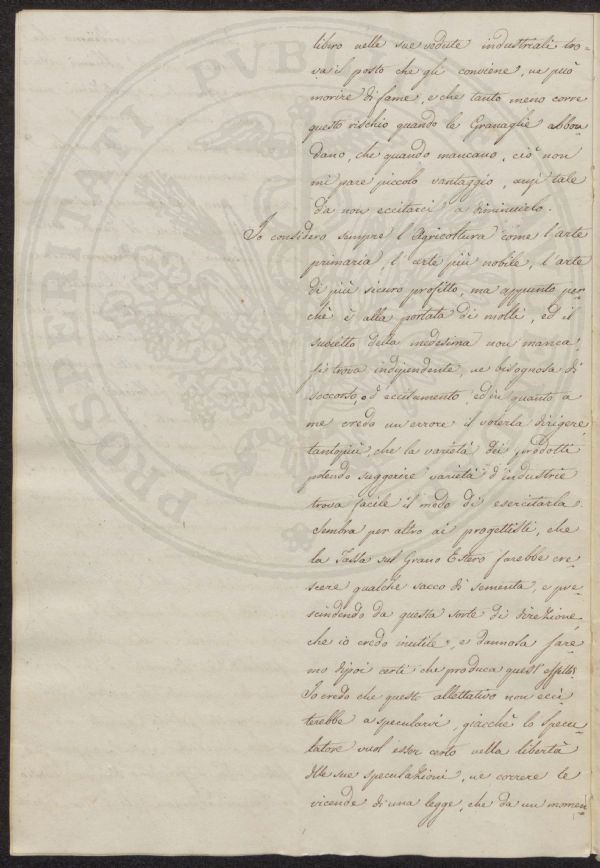 libero nelle sue vedute industriali tro-
va il posto che gli conviene, ne può
morire di fame, e che tanto meno corre
questo rischio quando le Granaglie abbon
dano, che quando mancano, ciò non
mi pare piccolo vantaggio, anzi tale
da non eccitarci a diminuirlo.
Io considero sempre l'Agricoltura come l'arte
primaria, l'arte più nobile, l'arte
di più sicuro profitto, ma appunto per-
chè è alla portata di molti, ed il
subietto della medesima non manca
si trova indipendente, ne bisognosa di
soccorso, o d'eccitamento, ed in quanto a
me credo un'errore il volerla dirigere,
tantopiù, che la varietà dei prodotti
potendo suggerire varietà d'industrie
trova facile il modo di esercitarla.
Sembra per altro ai progettisti, che
la Tassa sul Grano Estero farebbe cre-
scere qualche sacco di sementa, e pre-
scindendo da questa sorte di direzione,
che io credo inutile, e dannosa sare-
mo dipoi certi che produca quest'effetto?
Io credo che questo allettativo non ecci
terebbe a specularvi, giacchè lo Specu-
latore vuol esser certo nella libertà
delle sue speculazioni, ne correre le
vicende di una legge, che da un momen
PROSPERITATI PVBL